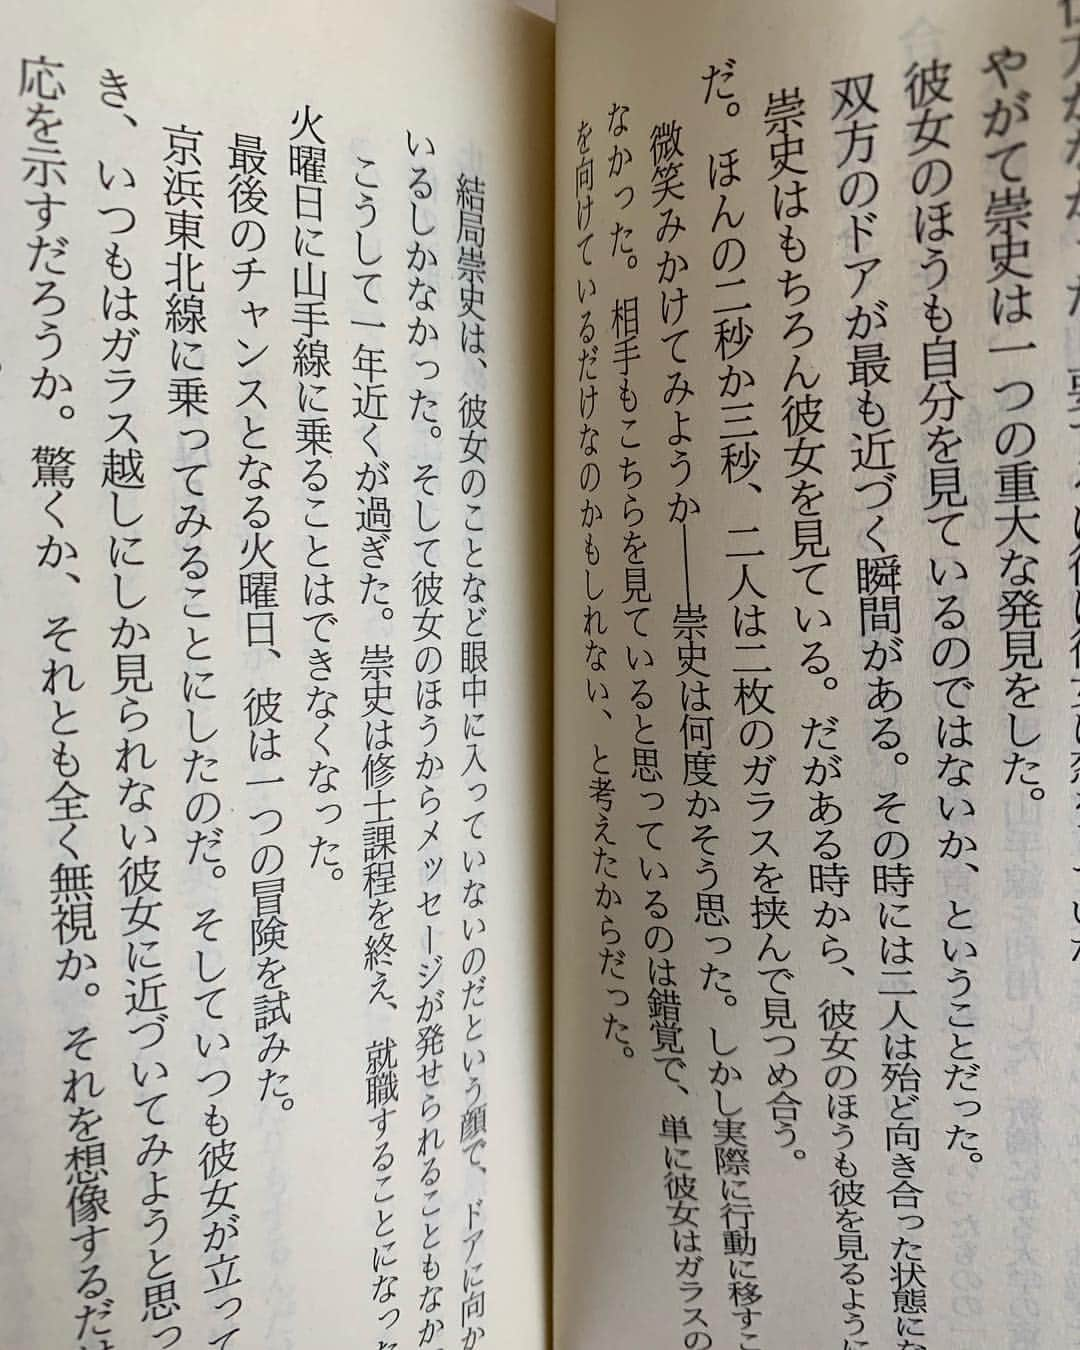 やがて崇史は一つの重大な発見をした。
彼女のほうも自分を見ているのではないか、ということだった。
双方のドアが最も近づく瞬間がある。その時には二人は殆ど向き合った状態にな
崇史はもちろん彼女を見ている。だがある時から、彼女のほうも彼を見るように
だ。ほんの二秒か三秒、二人は二枚のガラスを挟んで見つめ合う。
微笑みかけてみようか――崇史は何度かそう思った。しかし実際に行動に移すこ
なかった。相手もこちらを見ていると思っているのは錯覚で、単に彼女はガラスの
を向けているだけなのかもしれない、と考えたからだった。
結局崇史は、彼女のことなど眼中に入っていないのだという顔で、ドアに向か
いるしかなかった。そして彼女のほうからメッセージが発せられることもなか
こうして一年近くが過ぎた。崇史は修士課程を終え、就職することになった
火曜日に山手線に乗ることはできなくなった。
最後のチャンスとなる火曜日、彼は一つの冒険を試みた。
京浜東北線に乗ってみることにしたのだ。そしていつも彼女が立って
き、いつもはガラス越しにしか見られない彼女に近づいてみようと思っ
応を示すだろうか。驚くか、それとも全く無視か。それを想像するだけ